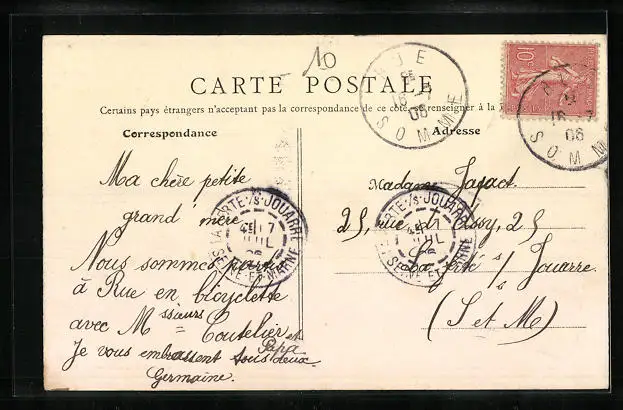 10
CARTE POSTALE
Certains pays étrangers n'acceptent pas la correspondance de ce côté, se renseigner à la
Correspondance
Adresse
Ma chère petite
grand mère
Nous sommes
à Rue en bicyclette
avec Mssieurs Coutelier et Papa
Je vous embrassent tous deux.
Germaine.
Madame
25, rue d' 25
La Ferté s/ Jouarre.
(S et M)
RUE
16 -7
06
SOMME
10c
16 7
06
SOMME
LA FERTE-S/S-JOUARRE
17
JUIL
SEINE ET MARNE
LA FERTE-S/S-JOUARRE
JUIL
SEINE ET MARNE